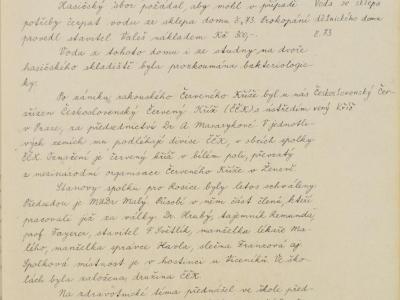 Hasičský sbor požádal, aby mohl v případě
potřeby čerpat vodu ze sklepa domu č. 73. Prokopání
provedl stavitel Valeš nákladem Kč 300,-.
Voda ze sklepa
dělnického domu
č. 73
Voda z tohoto domu i ze studny na dvoře
hasičského skladiště byla prozkoumána bakteriologic-
ky.
Po zániku rakouského Červeného Kříže byl u nás
zřízen Československý Červený Kříž (ČČK) s ústředím
v Praze, za předsednictví Dr A. Masarykové. V jednotli-
vých zemích mu podléhají divise ČČK, v obcích spolky
ČČK. Označení je červený kříž v bílém poli, převzatý
z mezinárodní organisace Červeného Kříže v Ženevě.
Československý Čer-
vený Kříž
Stanovy spolku pro Rosice byly letos schváleny.
Předsedou je MUDr Malý. Působí v něm část členů, kteří
pracovali již za války: Dr. Hrubý, tajemník Remanda,
prof. Fayerer, stavitel F. Světlík, manželka lékaře Ma-
lého, manželka správce Havla, slečna Francová aj.
Spolková místnost je v hostinci u Viceníků. Ve ško-
lách byla založena družina ČČK.
Na zdravotnické téma přednášel ve škole před-